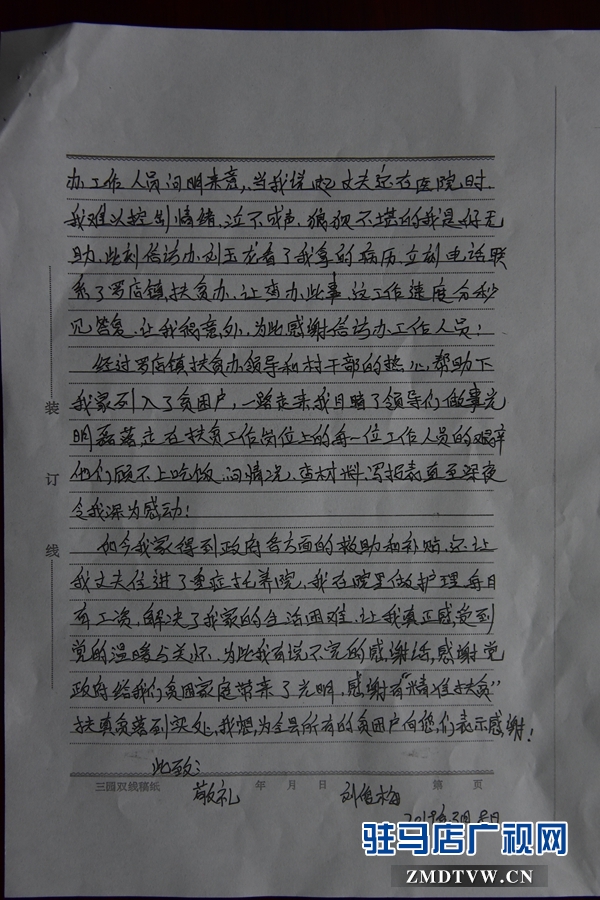 办工作人员问明来意，当我说起丈夫还在医院时
我难以控制情绪，泣不成声，狼狈不堪的我是好无
助，此刻信访办刘玉龙看了我拿的病历，立刻电话联
系了罗店镇扶贫办，让查办此事，这工作速度分秒
见答复，让我很意外，为此感谢信访办工作人员！
经过罗店镇扶贫办领导和村干部的热心帮助下
我家列入了贫困户，一路走来我目睹了领导们做事光
明磊落走在扶贫工作岗位上的每一位工作人员的艰辛
他们顾不上吃饭，问情况，查材料，写报表直至深夜
令我深为感动！
如今我家得到政府各方面的救助和补贴，还让
我丈夫住进了重症托养院，我在院里做护理，每月
有工资，解决了我家的生活困难，让我真正感受到
党的温暖与关怀，为此我有说不完的感谢话，感谢党
政府给我们贫困家庭带来了光明，感谢有“精准扶贫”
扶真贫落到实处，我想，为全县所有的贫困户向您们表示感谢！
此致：
敬礼
刘俊梅
三圆双线稿纸
年 月 日
第 页
装
订
线
驻马店广视网
ZMDTVW.CN